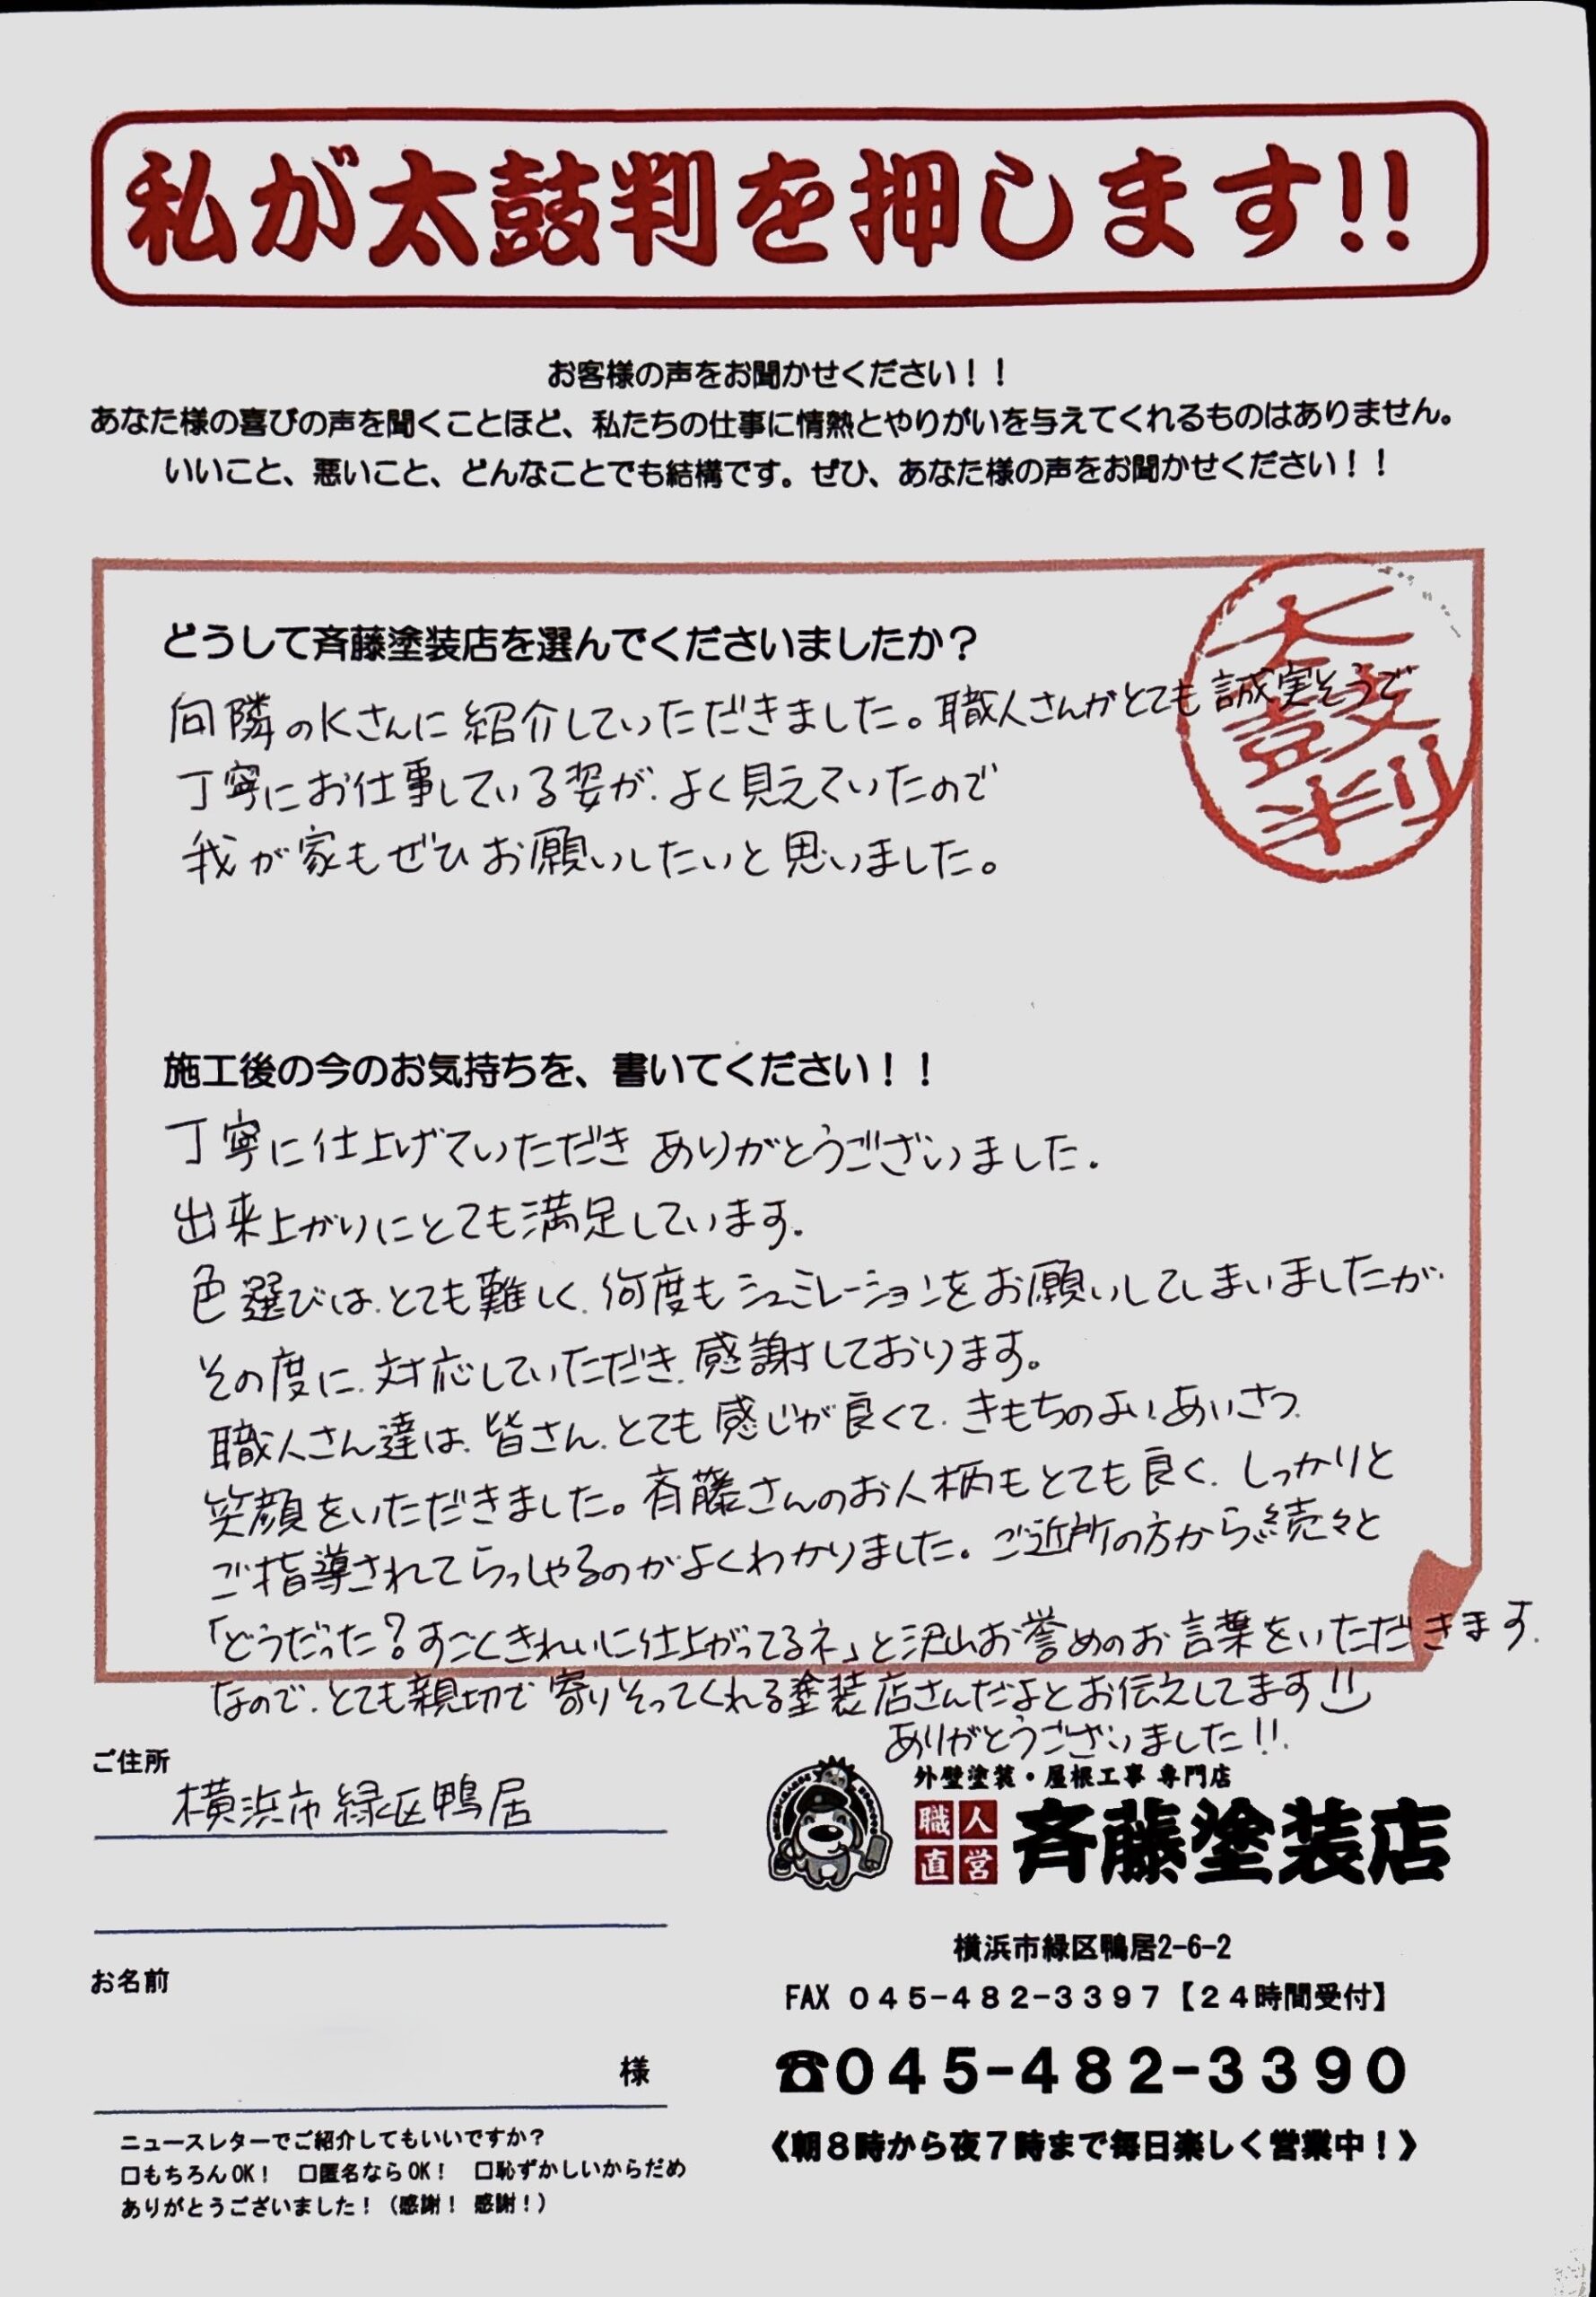 私が太鼓判を押します!!
お客様の声をお聞かせください！！
あなた様の喜びの声を聞くことほど、私たちの仕事に情熱とやりがいを与えてくれるものはありません。
いいこと、悪いこと、どんなことでも結構です。ぜひ、あなた様の声をお聞かせください！！
太鼓判
どうして斉藤塗装店を選んでくださいましたか？
向隣のKさんに紹介していただきました。職人さんがとても誠実そうで
丁寧にお仕事している姿が、よく見えていたので
我が家もぜひお願いしたいと思いました。
施工後の今のお気持ちを、書いてください！！
丁寧に仕上げていただきありがとうございました。
出来上がりにとても満足しています。
色選びは、とても難しく、何度もシュミレーションをお願いしてしまいましたが
その度に、対応していただき、感謝しております。
職人さん達は、皆さん、とても感じが良くて、きもちのよいあいさつ、
笑顔をいただきました。斉藤さんのお人柄もとても良く、しっかりと
ご指導されてらっしゃるのがよくわかりました。ご近所の方から続々と
「どうだった？すごくきれいに仕上がってるネ」と沢山お誉めのお言葉をいただきます。
なので、とても親切で寄りそってくれる塗装店さんだよとお伝えしてます!!
ありがとうございました!!
ご住所
横浜市緑区鴨居
お名前
様
ニュースレターでご紹介してもいいですか？
□もちろんOK！ □匿名ならOK！ □恥ずかしいからだめ
ありがとうございました！（感謝！ 感謝！）
外壁塗装・屋根工事 専門店
職人直営 斉藤塗装店
横浜市緑区鴨居2-6-2
FAX ０４５-４８２-３３９７【２４時間受付】
☎０４５-４８２-３３９０
《朝８時から夜７時まで毎日楽しく営業中！》